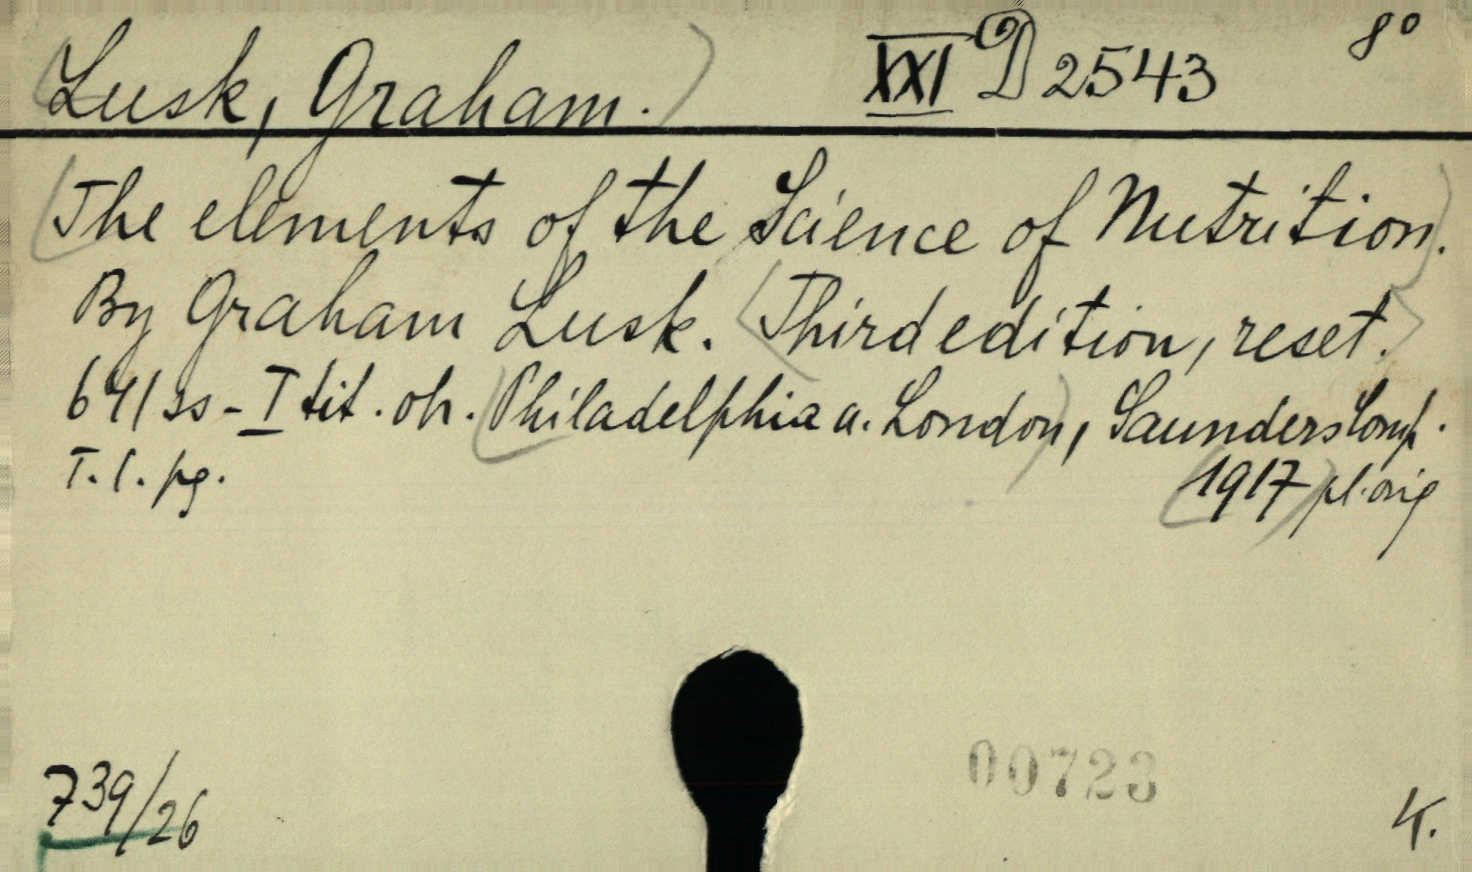 Lusk, Graham. XXI D 2543 8°
The elements of the Science of Nutrition.
By Graham Lusk. Third edition, reset.
641 ss - I tit. ob. Philadelphia a. London, Saunders Comp.
T. l. pg. 1917 pl. orig
00723
739/26 K.